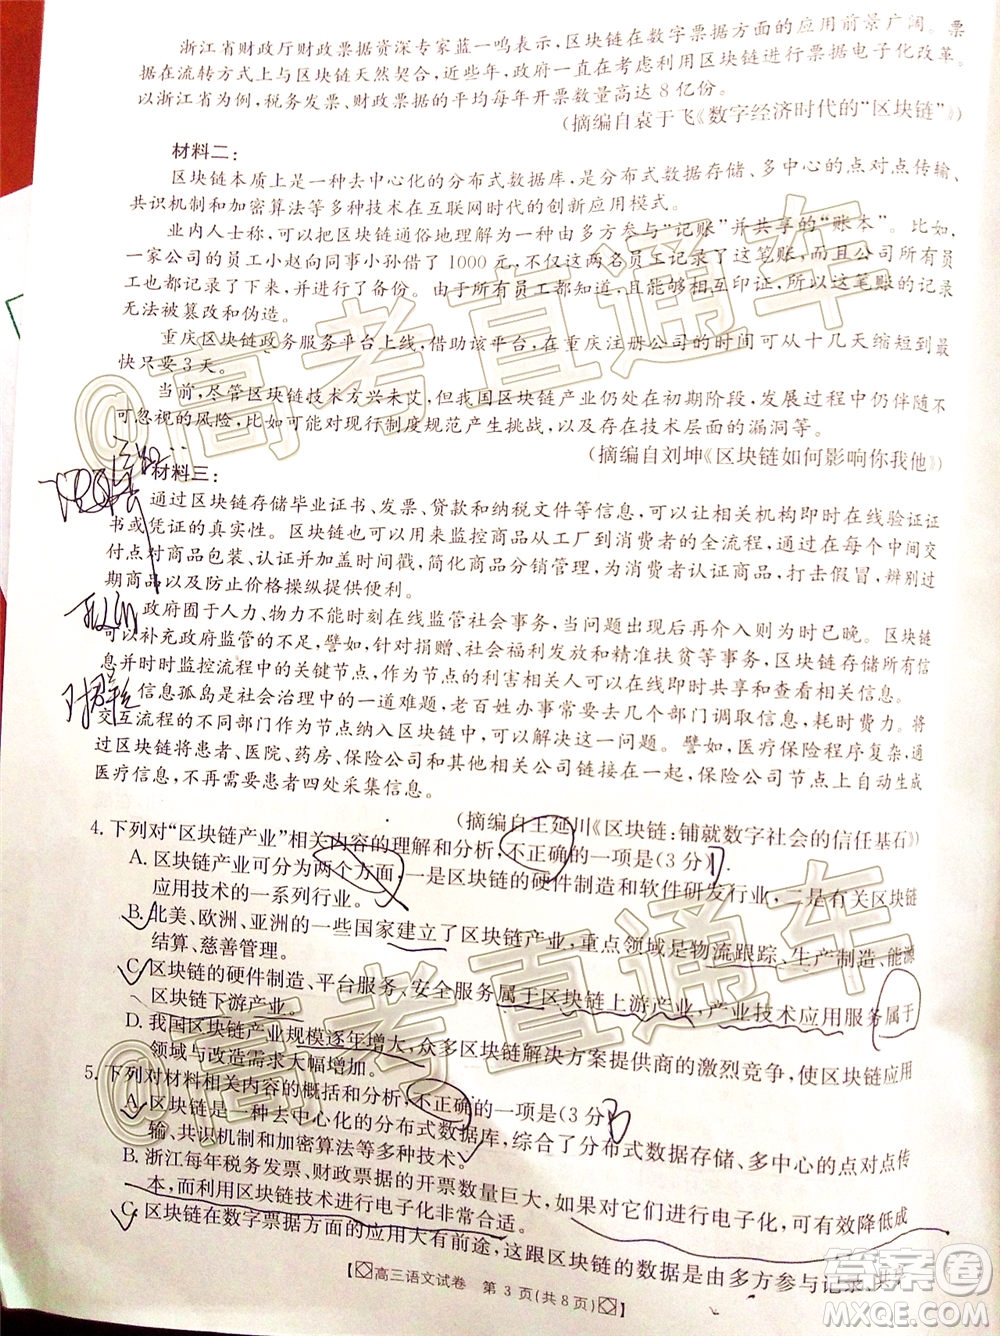 浙江省财政厅财政票据资深专家蓝一鸣表示,区块链在数字票据方面的应用前景广阔。票
据在流转方式上与区块链天然契合,近些年,政府一直在考虑利用区块链进行票据电子化改革。
以浙江省为例,税务发票、财政票据的平均每年开票数量高达8亿份。
(摘编自袁于飞《数字经济时代的“区块链”》)
材料二:
区块链本质上是一种去中心化的分布式数据库,是分布式数据存储、多中心的点对点传输、
共识机制和加密算法等多种技术在互联网时代的创新应用模式。
业内人士称,可以把区块链通俗地理解为一种由多方参与“记账”并共享的“账本”。比如,
一家公司的员工小赵向同事小孙借了1000元,不仅这两名员工记录了这笔账,而且公司所有员
工也都记录了下来,并进行了备份。由于所有员工都知道,且能够相互印证,所以这笔账的记录
无法被篡改和伪造。
重庆区块链政务服务平台上线,借助该平台,在重庆注册公司的时间可从十几天缩短到最
快只要3天。
当前,尽管区块链技术方兴未艾,但我国区块链产业仍处在初期阶段,发展过程中仍伴随不
可忽视的风险,比如可能对现行制度规范产生挑战,以及存在技术层面的漏洞等。
(摘编自刘坤《区块链如何影响你我他》)
材料三:
通过区块链存储毕业证书、发票、贷款和纳税文件等信息,可以让相关机构即时在线验证证
书或凭证的真实性。区块链也可以用来监控商品从工厂到消费者的全流程,通过在每个中间交
付点对商品包装、认证并加盖时间戳,简化商品分销管理,为消费者认证商品,打击假冒,辨别过
期商品以及防止价格操纵提供便利。
政府囿于人力、物力不能时刻在线监管社会事务,当问题出现后再介入则为时已晚。区块链
可以补充政府监管的不足,譬如,针对捐赠、社会福利发放和精准扶贫等事务,区块链可共享信
息并时时监控流程中的关键节点,作为节点的利害相关人可以在线即时共享和查看相关信息。
信息孤岛是社会治理中的一道难题,老百姓办事常要去几个部门调取信息,费时费力。将
交互流程的不同部门作为节点纳入区块链中,可以解决这一问题。譬如,医疗保险程序复杂,通
过区块链将患者、医院、药房、保险公司和其他相关公司链接在一起,保险公司节点上自动生成
医疗信息,不再需要患者四处采集信息。
(摘编自王延川《区块链:铺就数字社会的信任基石》)
4. 下列对“区块链产业”相关内容的理解和分析,不正确的一项是(3分) D
A. 区块链产业可分为两个方面,一是区块链的硬件制造和软件研发行业,二是有关区块链
应用技术的一系列行业。
B. 北美、欧洲、亚洲的一些国家建立了区块链产业,重点领域是物流跟踪、生产制造、能源
结算、慈善管理。
C. 区块链的硬件制造、平台服务、安全服务属于区块链上游产业,产业技术应用服务属于
区块链下游产业。
D. 我国区块链产业规模逐年增大,众多区块链解决方案提供商的激烈竞争,使区块链应用
领域与改造需求大幅增加。
5. 下列对材料相关内容的概括和分析,不正确的一项是(3分) B
A. 区块链是一种去中心化的分布式数据库,综合了分布式数据存储、多中心的点对点传
输、共识机制和加密算法等多种技术。
B. 浙江每年税务发票、财政票据的开票数量巨大,如果对它们进行电子化,可有效降低成
本,而利用区块链技术进行电子化非常合适。
C. 区块链在数字票据方面的应用大有前途,这跟区块链的数据是由多方参与记录、共享
【高三语文试卷 第3页(共8页)】
@高考直通车
@高考直通车
答案圈
MXQE.COM